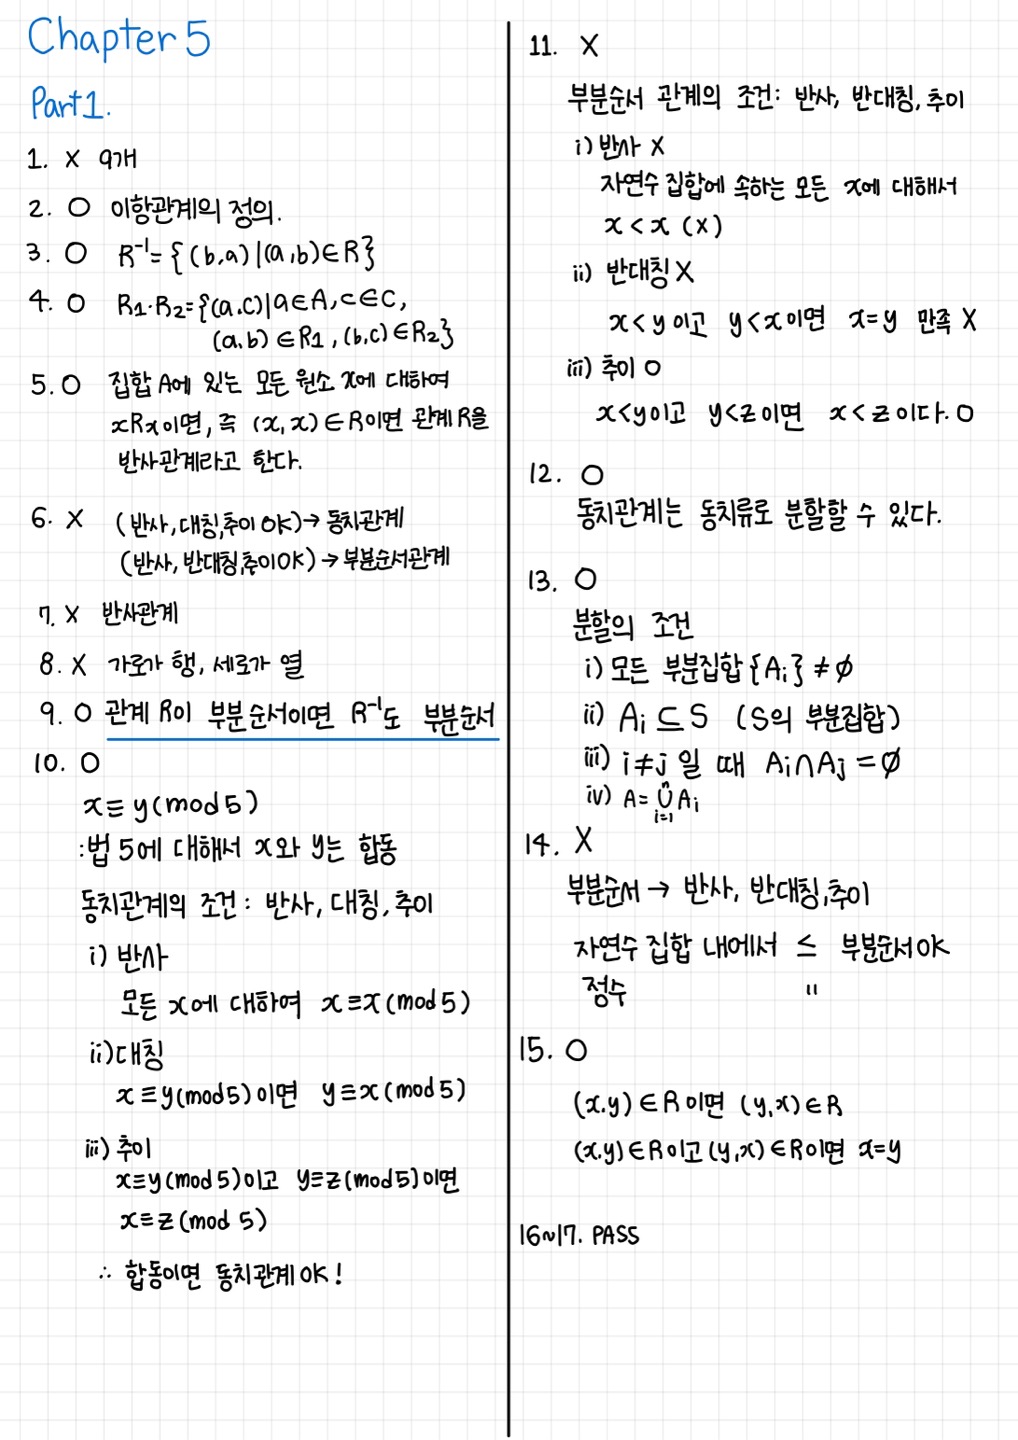 Chapter 5
Part 1.
1. X 9개
2. O 이항관계의 정의.
3. O R⁻¹={(b,a)|(a,b)∈R}
4. O R₁·R₂={(a.c)|a∈A,c∈C,
(a.b)∈R₁,(b,c)∈R₂}
5. O 집합 A에 있는 모든 원소 x에 대하여
xRx이면, 즉 (x,x)∈R이면 관계 R을
반사관계라고 한다.
6. X (반사,대칭,추이 OK)→동치관계
(반사, 반대칭,추이OK)→부분순서관계
7. X 반사관계
8. X 가로가 행, 세로가 열
9. O 관계 R이 부분순서이면 R⁻¹도 부분순서
10. O
x≡y(mod5)
:법 5에 대해서 x와 y는 합동
동치관계의 조건: 반사, 대칭, 추이
i) 반사
모든 x에 대하여 x≡x(mod5)
ii)대칭
x≡y(mod5)이면 y≡x(mod5)
iii) 추이
x≡y(mod5)이고 y≡z(mod5)이면
x≡z(mod 5)
∴ 합동이면 동치관계OK!
11. X
부분순서 관계의 조건: 반사, 반대칭, 추이
i) 반사 X
자연수 집합에 속하는 모든 x에 대해서
x<x (x)
ii) 반대칭 X
x<y이고 y<x이면 x=y 만족 X
iii) 추이 O
x<y이고 y<z이면 x<z이다. O
12. O
동치관계는 동치류로 분할할 수 있다.
13. O
분할의 조건
i) 모든 부분집합 {Aᵢ}≠∅
ii) Aᵢ⊆S (S의 부분집합)
iii) i≠j 일 때 Aᵢ∩Aⱼ=∅
iv) A=ⁿ∪ᵢ₌₁Aᵢ
14. X
부분순서 → 반사, 반대칭,추이
자연수 집합 내에서 ≤ 부분순서OK
정수 〃
15. O
(x.y)∈R이면 (y,x)∈R
(x.y)∈R이고(y,x)∈R이면 x=y
16~17. PASS